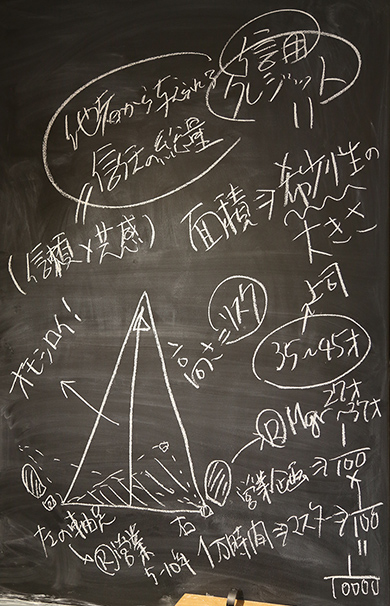 信用
クレジット
||
他者から与えられる
信任の総量
||
(信頼×共感)
面積⇒希少性の
大きさ
上司
高さ=リスク
35~45才
オモシロイ!
Ⓡ Mgr 27才
~37才
営業企画⇒1/100
×
1万時間⇒マスター⇒1/100
||
1/10000
左の軸足
右
Ⓡ営業
5~10年